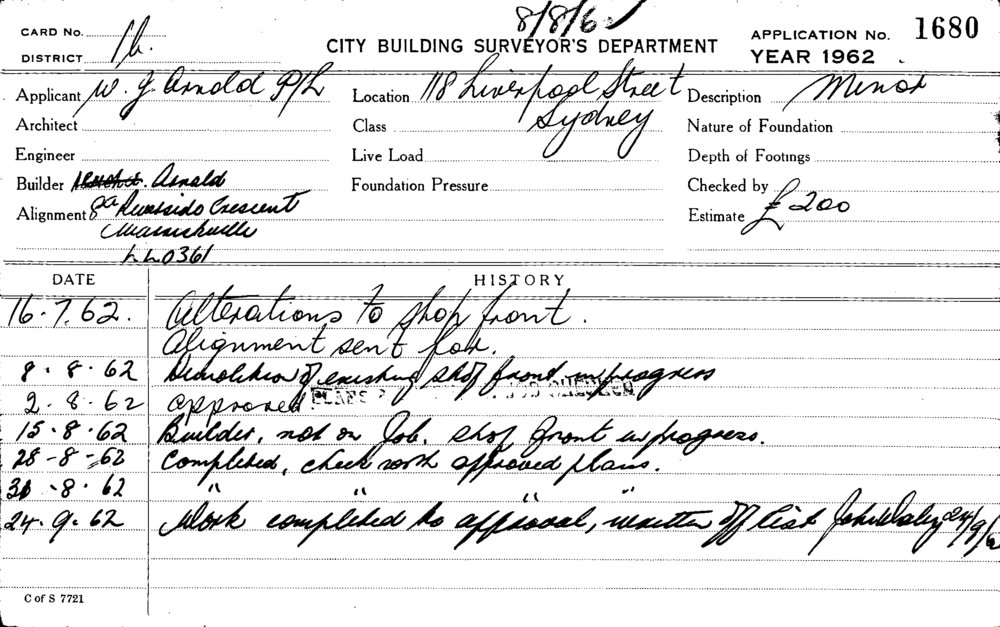 8/8/62
CARD No.
DISTRICT 1b.
CITY BUILDING SURVEYOR'S DEPARTMENT
APPLICATION No. 1680
YEAR 1962
Applicant W. J. Arnold P/L
Location 118 Liverpool Street
Sydney
Description Minor
Architect
Class
Nature of Foundation
Engineer
Live Load
Depth of Footings
Builder Arnold
Foundation Pressure
Checked by
Alignment Riverside Crescent
Marrickville
LL0361
Estimate £200
DATE HISTORY
16.7.62. Alterations to shop front.
Alignment sent for.
8.8.62 Demolition of existing shop front in progress
2.8.62 Approved
15.8.62 Builder, not on Job, shop front in progress.
28-8-62 Completed, check with approved plans.
30-8.62 " " " "
24.9.62 Work completed to approval, written off list 24/9/62
C of S 7721